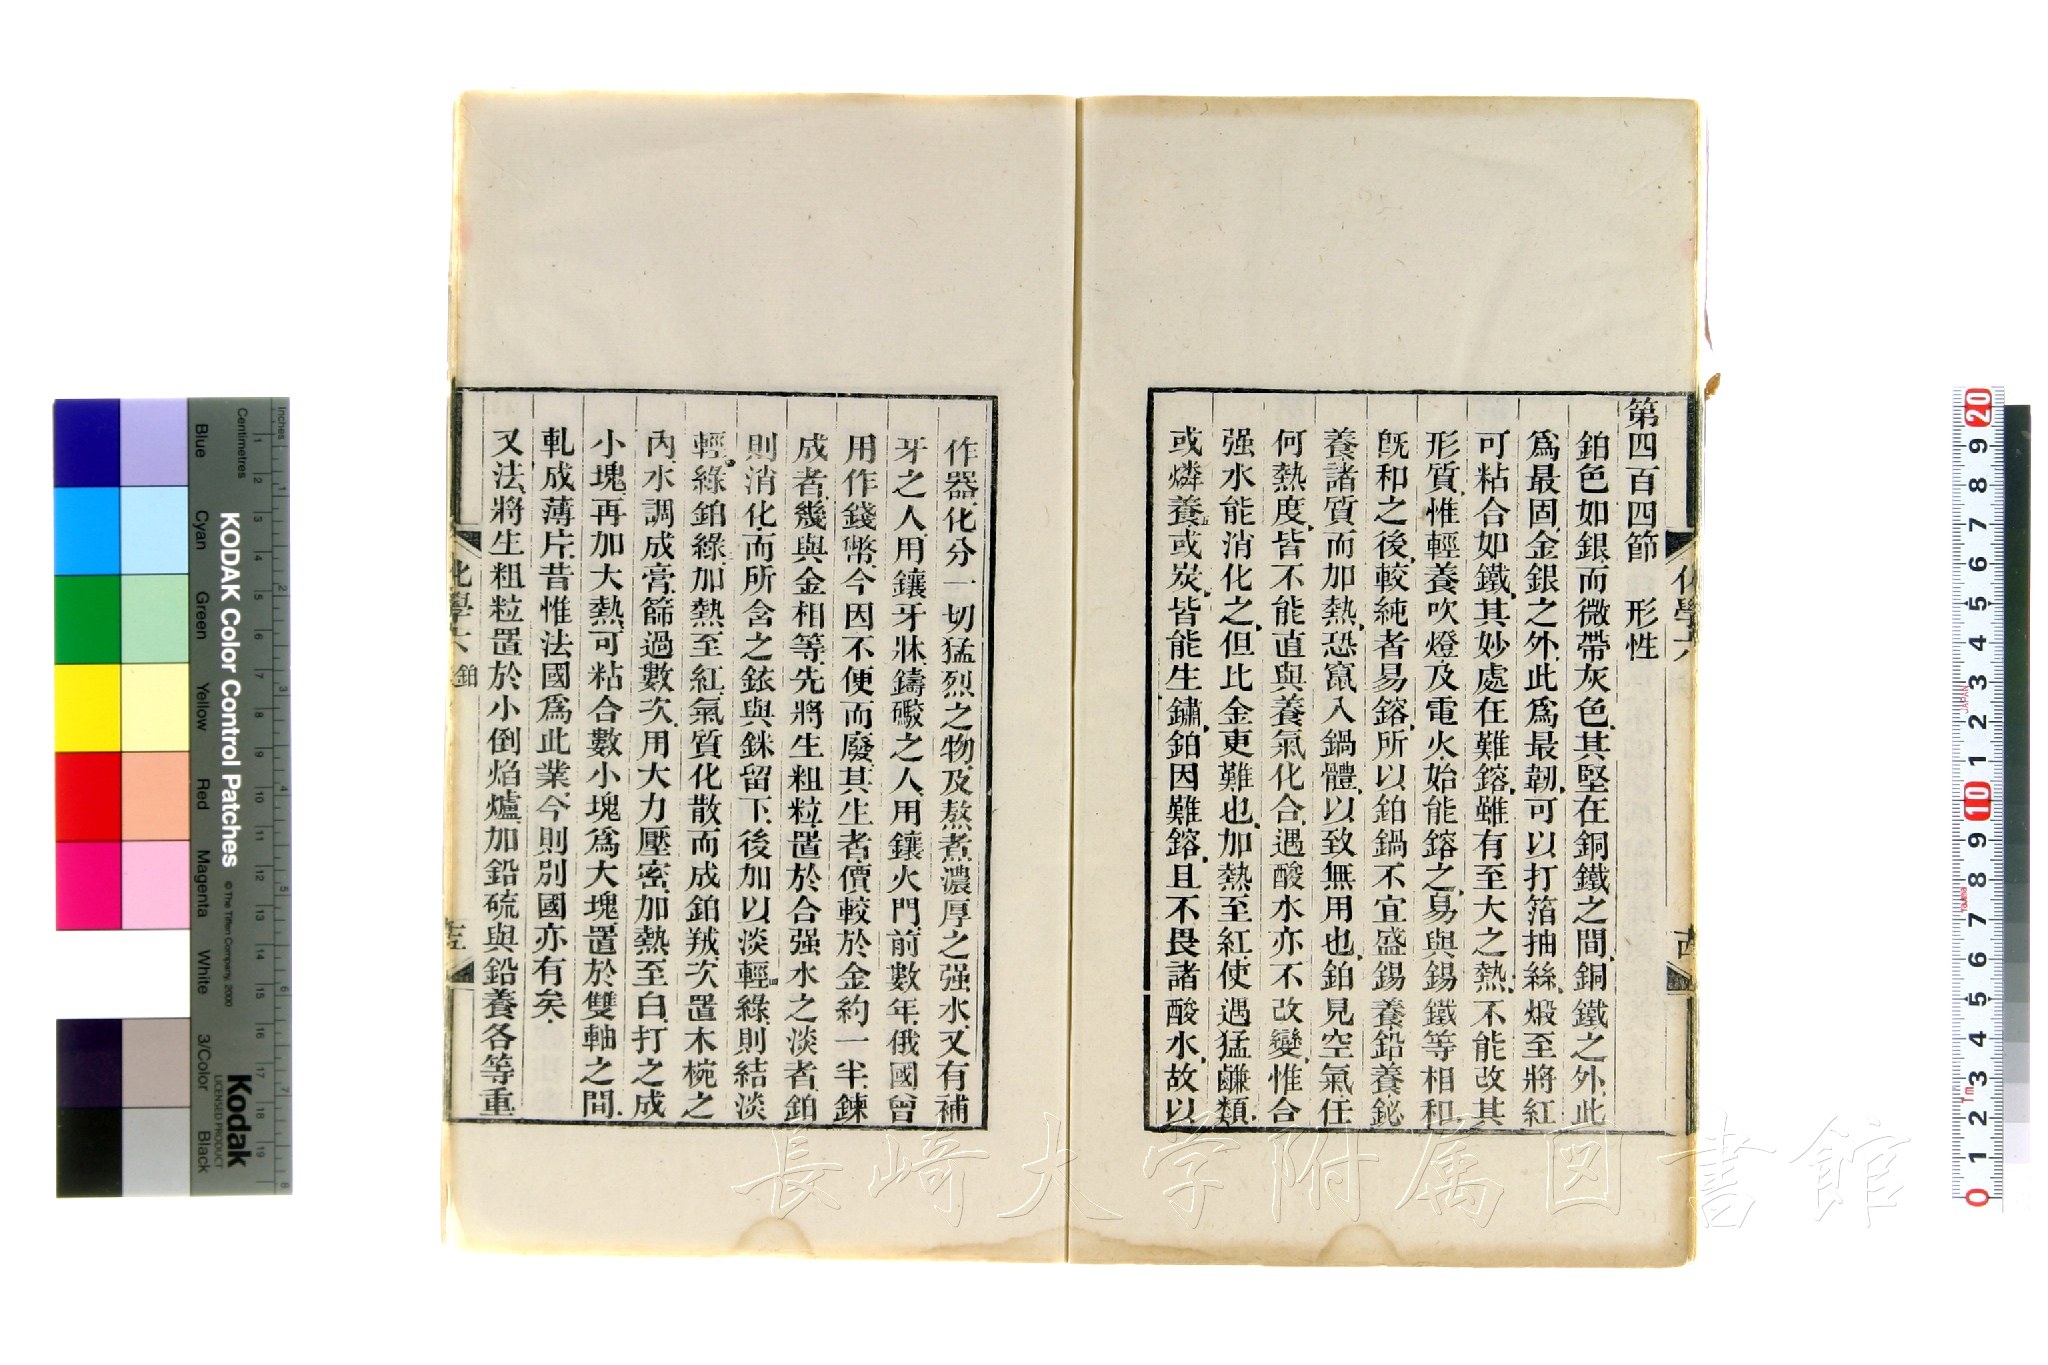 第四百四節　形性
鉑色如銀而微帶灰色其堅在銅鐵之間銅鐵之外此
爲最固金銀之外此爲最韌可以打箔抽絲煅至將紅
可粘合如鐵其妙處在難鎔雖有至大之熱不能改其
形質惟輕養吹燈及電火始能鎔之易與錫鐵等相和
旣和之後較純者易鎔所以鉑鍋不宜盛錫養鉛養鉍
養諸質而加熱恐竄入鍋體以致無用也鉑見空氣任
何熱度皆不能直與養氣化合遇酸水亦不改變惟合
强水能消化之但比金更難也加熱至紅使遇猛鹻類
或燐養或炭皆能生鏽鉑因難鎔且不畏諸酸水故以
化學六
十四
作器化分一切猛烈之物及熬煮濃厚之强水又有補
牙之人用鑲牙牀鑄礮之人用鑲火門前數年俄國曾
用作錢幣今因不便而廢其生者價較於金約一半鍊
成者幾與金相等先將生粗粒置於合强水之淡者鉑
則消化而所含之銥與銤留下後加以淡輕綠則結淡
輕綠鉑綠加熱至紅氣質化散而成鉑羢次置木椀之
內水調成膏篩過數次用大力壓密加熱至白打之成
小塊再加大熱可粘合數小塊爲大塊置於雙軸之間
軋成薄片昔惟法國爲此業今則別國亦有矣
又法將生粗粒置於小倒焰爐加鉛硫與鉛養各等重
化學六 鉑
十五
長崎大学附属図書館
KODAK Color Control Patches
© The Tiffen Company, 2000
Kodak
LICENSED PRODUCT
Inches
Centimetres
Blue
Cyan
Green
Yellow
Red
Magenta
White
3/Color
Black
JAPAN